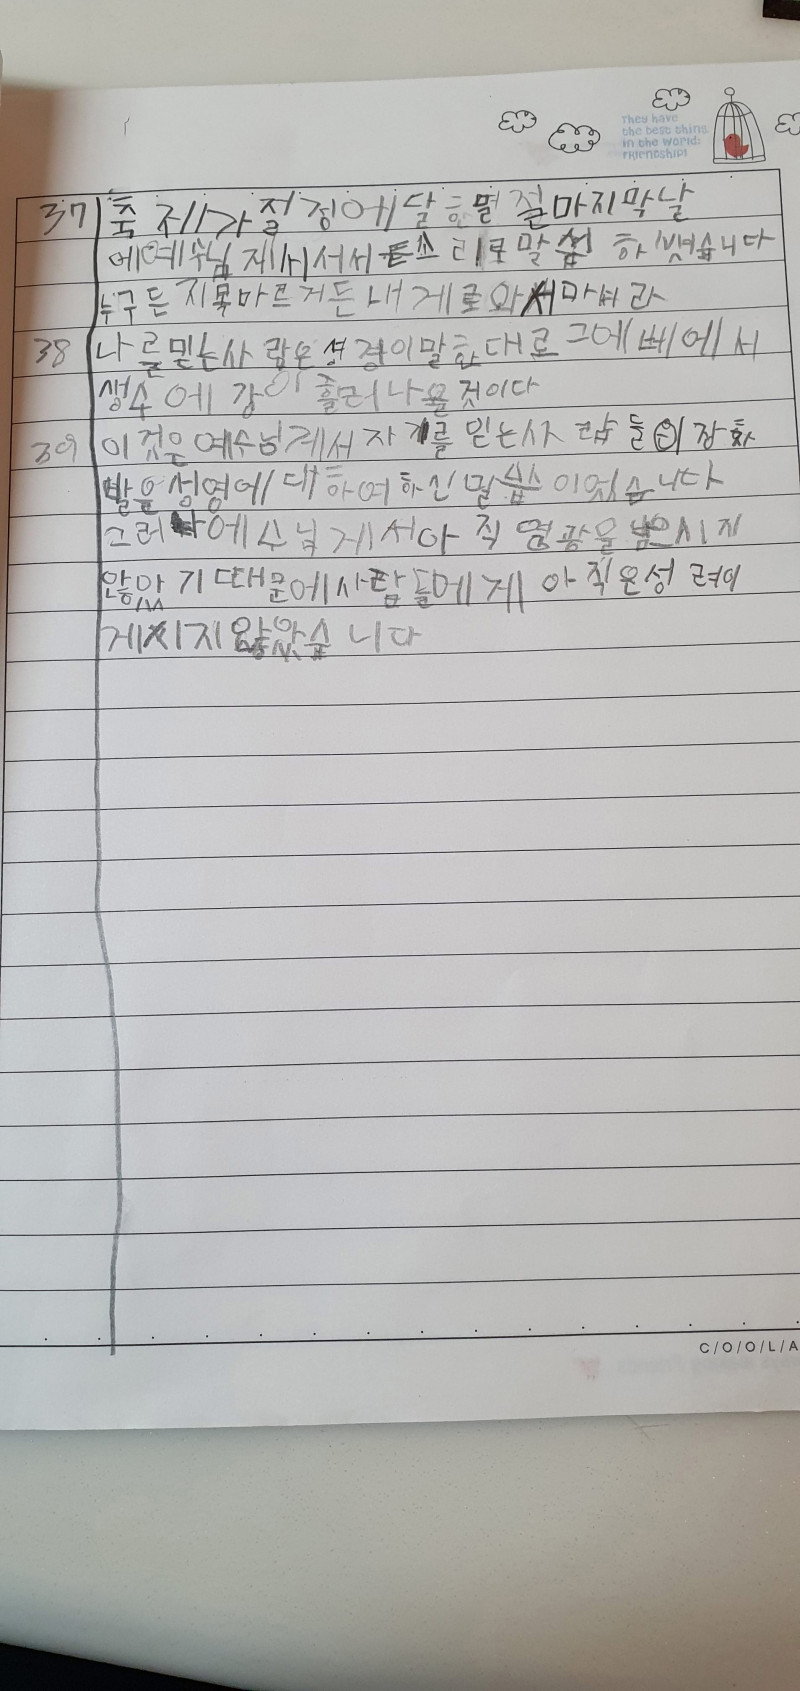 They have
the best thing
in the world:
FRIENDSHIP!
37 축제가 절정에 달한 명절 마지막 날
에 예수님께서 서서 큰 소리로 말씀하셨습니다
누구든지 목마르거든 내게로 와서 마셔라
38 나를 믿는 사람은 성경이 말한대로 그에 배에서
생수에 강이 흘러나올 것이다
39 이것은 예수님게서 자기를 믿는 사람들의 장차
받을 성영에 대하여 하신 말씀이었습니다
그러나 에수님게서 아직 영광을 받으시지
않았기 때문에 사람들에게 아직은 성령이
게시지 않았습니다
C/O/O/L/A